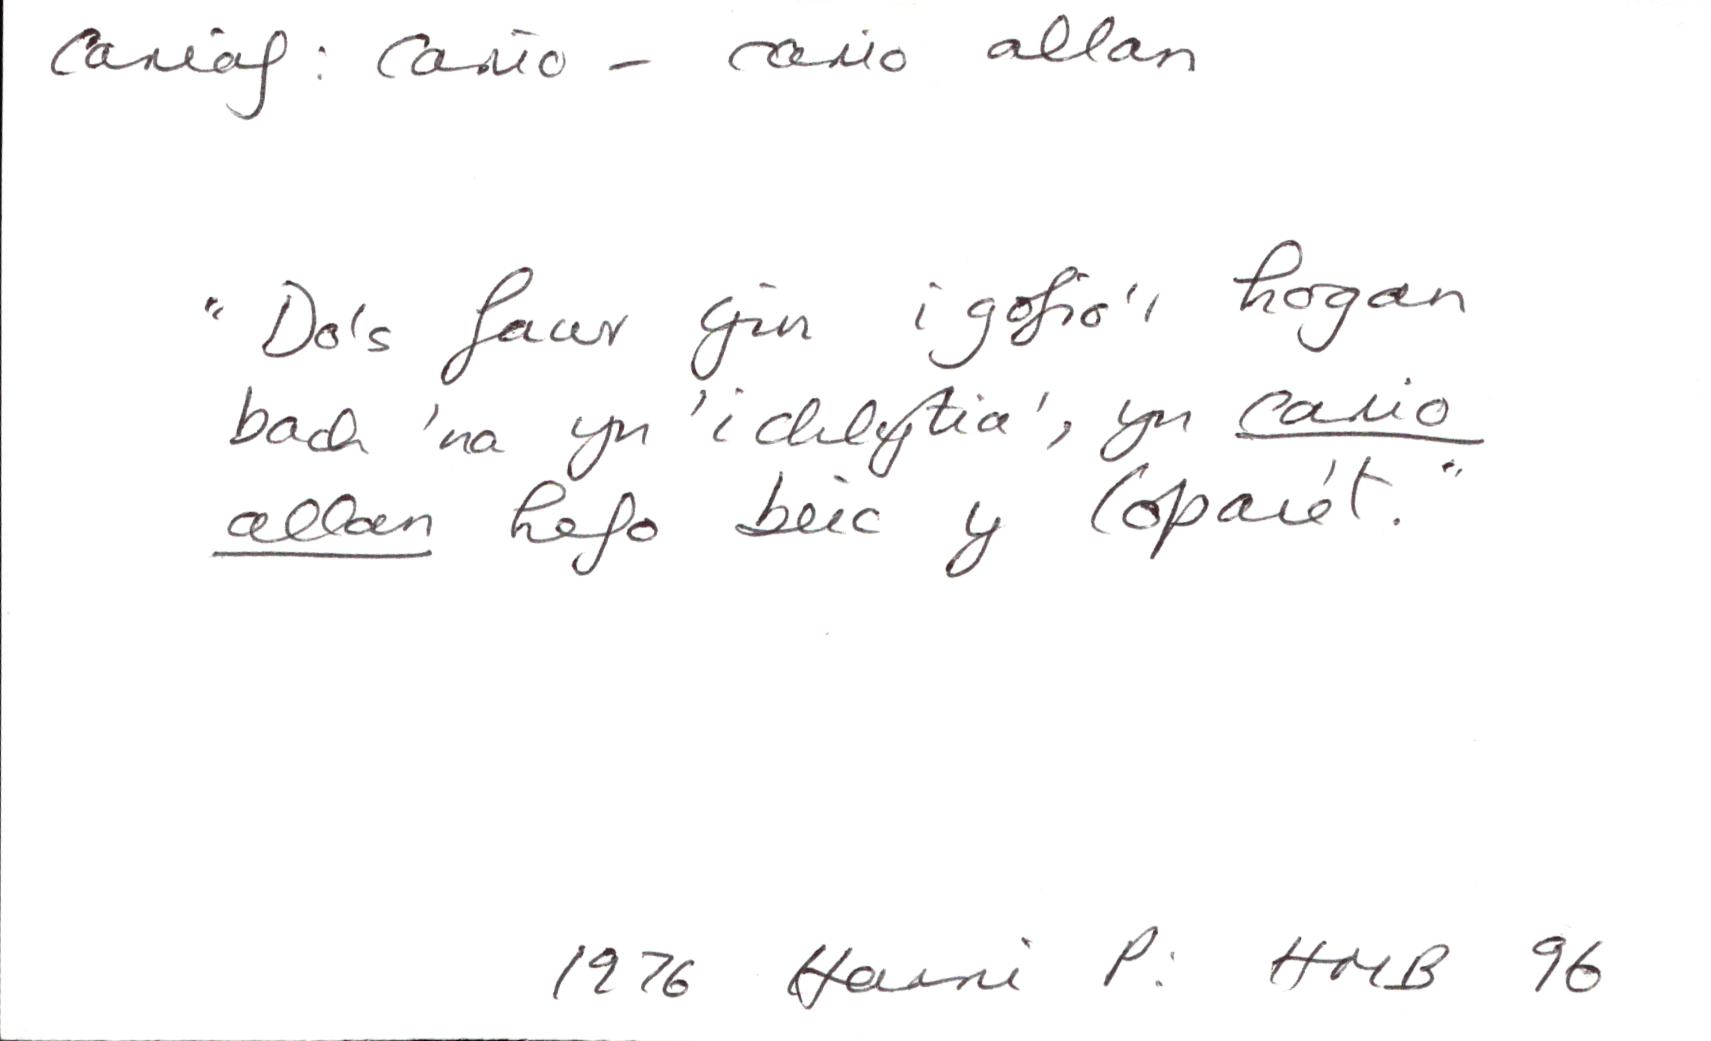 Cariaf: Cario - cario allan
"Do's fawr gin i gofio'r hogan
bach 'na yn 'i chlytia', yn cario
allan hefo beic y Coparét."
1976 Harri P: HMB 96